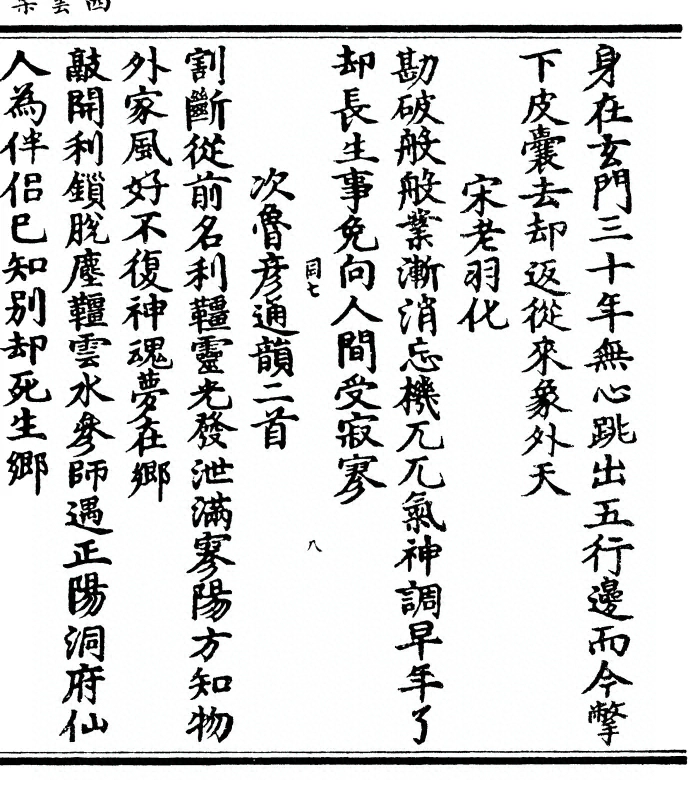 身在玄門三十年無心跳出五行邊而今撆
下皮囊去却返從來象外天
宋老羽化
勘破般般業漸消忘機兀兀氣神調早年了
却長生事免向人間受寂寥
同七
八
次魯彥通韻二首
割斷從前名利韁靈光發泄滿寥陽方知物
外家風好不復神魂夢在鄉
敲開利鎖脫塵韁雲水參師遇正陽洞府仙
人為伴侶已知別却死生鄉